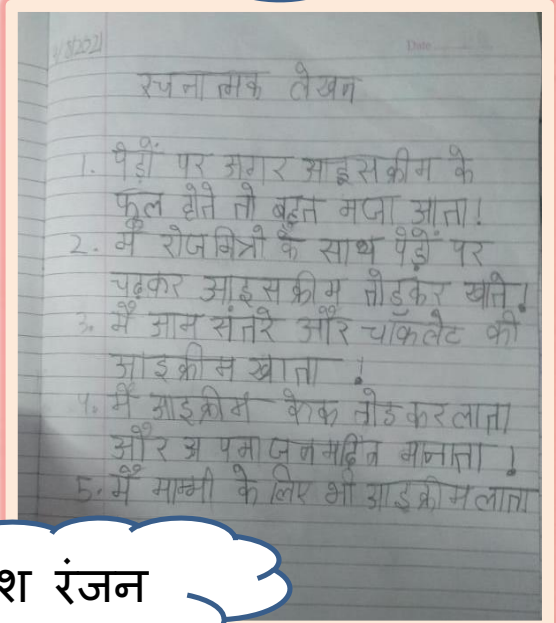 Date
रचनात्मक लेखन
1. पेड़ों पर अगर आइसक्रीम के
फूल होते तो बहुत मजा आता!
2. मैं रोज मित्रो के साथ पेड़ों पर
चढ़कर आइसक्रीम तोड़कर खाते!
3. मैं आम संतरे और चॉकलेट की
आइक्रीम खाता !
4. मैं आइक्रीम केक तोड़कर लाता
और अपना जनमदिन मानाता !
5. मैं माम्मी के लिए भी आइक्रीम लाता
रंजन